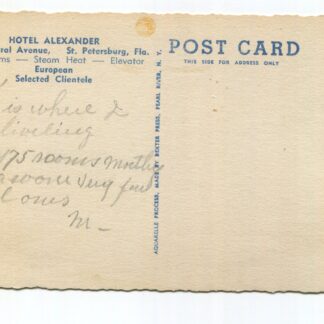 HOTEL ALEXANDER
ral Avenue, St. Petersburg, Fla.
ms — Steam Heat — Elevator
European
Selected Clientele
is where I
liveling
175 rooms monthly
a room very few
l ones
m—
AQUARELLE PROCESS, MADE BY DEXTER PRESS, PEARL RIVER, N. Y.
POST CARD
THIS SIDE FOR ADDRESS ONLY